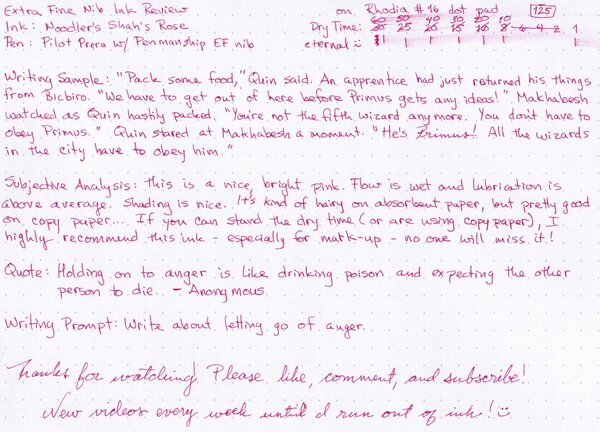 Extra Fine Nib Ink Review on Rhodia #16 dot pad 125
Ink: Noodler's Shah's Rose Dry Time: 60 50 40 30 20 10
30 25 20 15 10 8 6 4 2 1
Pen: Pilot Prera w/ Penmanship EF nib eternal
Writing Sample: "Pack some food," Quin said. An apprentice had just returned his things
from Bicbiro. "We have to get out of here before Primus gets any ideas!" Makhabesh
watched as Quin hastily packed. "You're not the fifth wizard anymore. You don't have to
obey Primus." Quin stared at Makhabesh a moment. "He's Primus! All the wizards
in the city have to obey him."
Subjective Analysis: this is a nice, bright pink. Flow is wet and lubrication is
above average. Shading is nice. It's kind of hairy on absorbent paper, but pretty good
on copy paper.... If you can stand the dry time (or are using copy paper), I
highly recommend this ink - especially for mark-up - no one will miss it!
Quote: Holding on to anger is like drinking poison and expecting the other
person to die. - Anonymous
Writing Prompt: Write about letting go of anger.
Thanks for watching! Please like, comment, and subscribe!
New videos every week until I run out of ink!